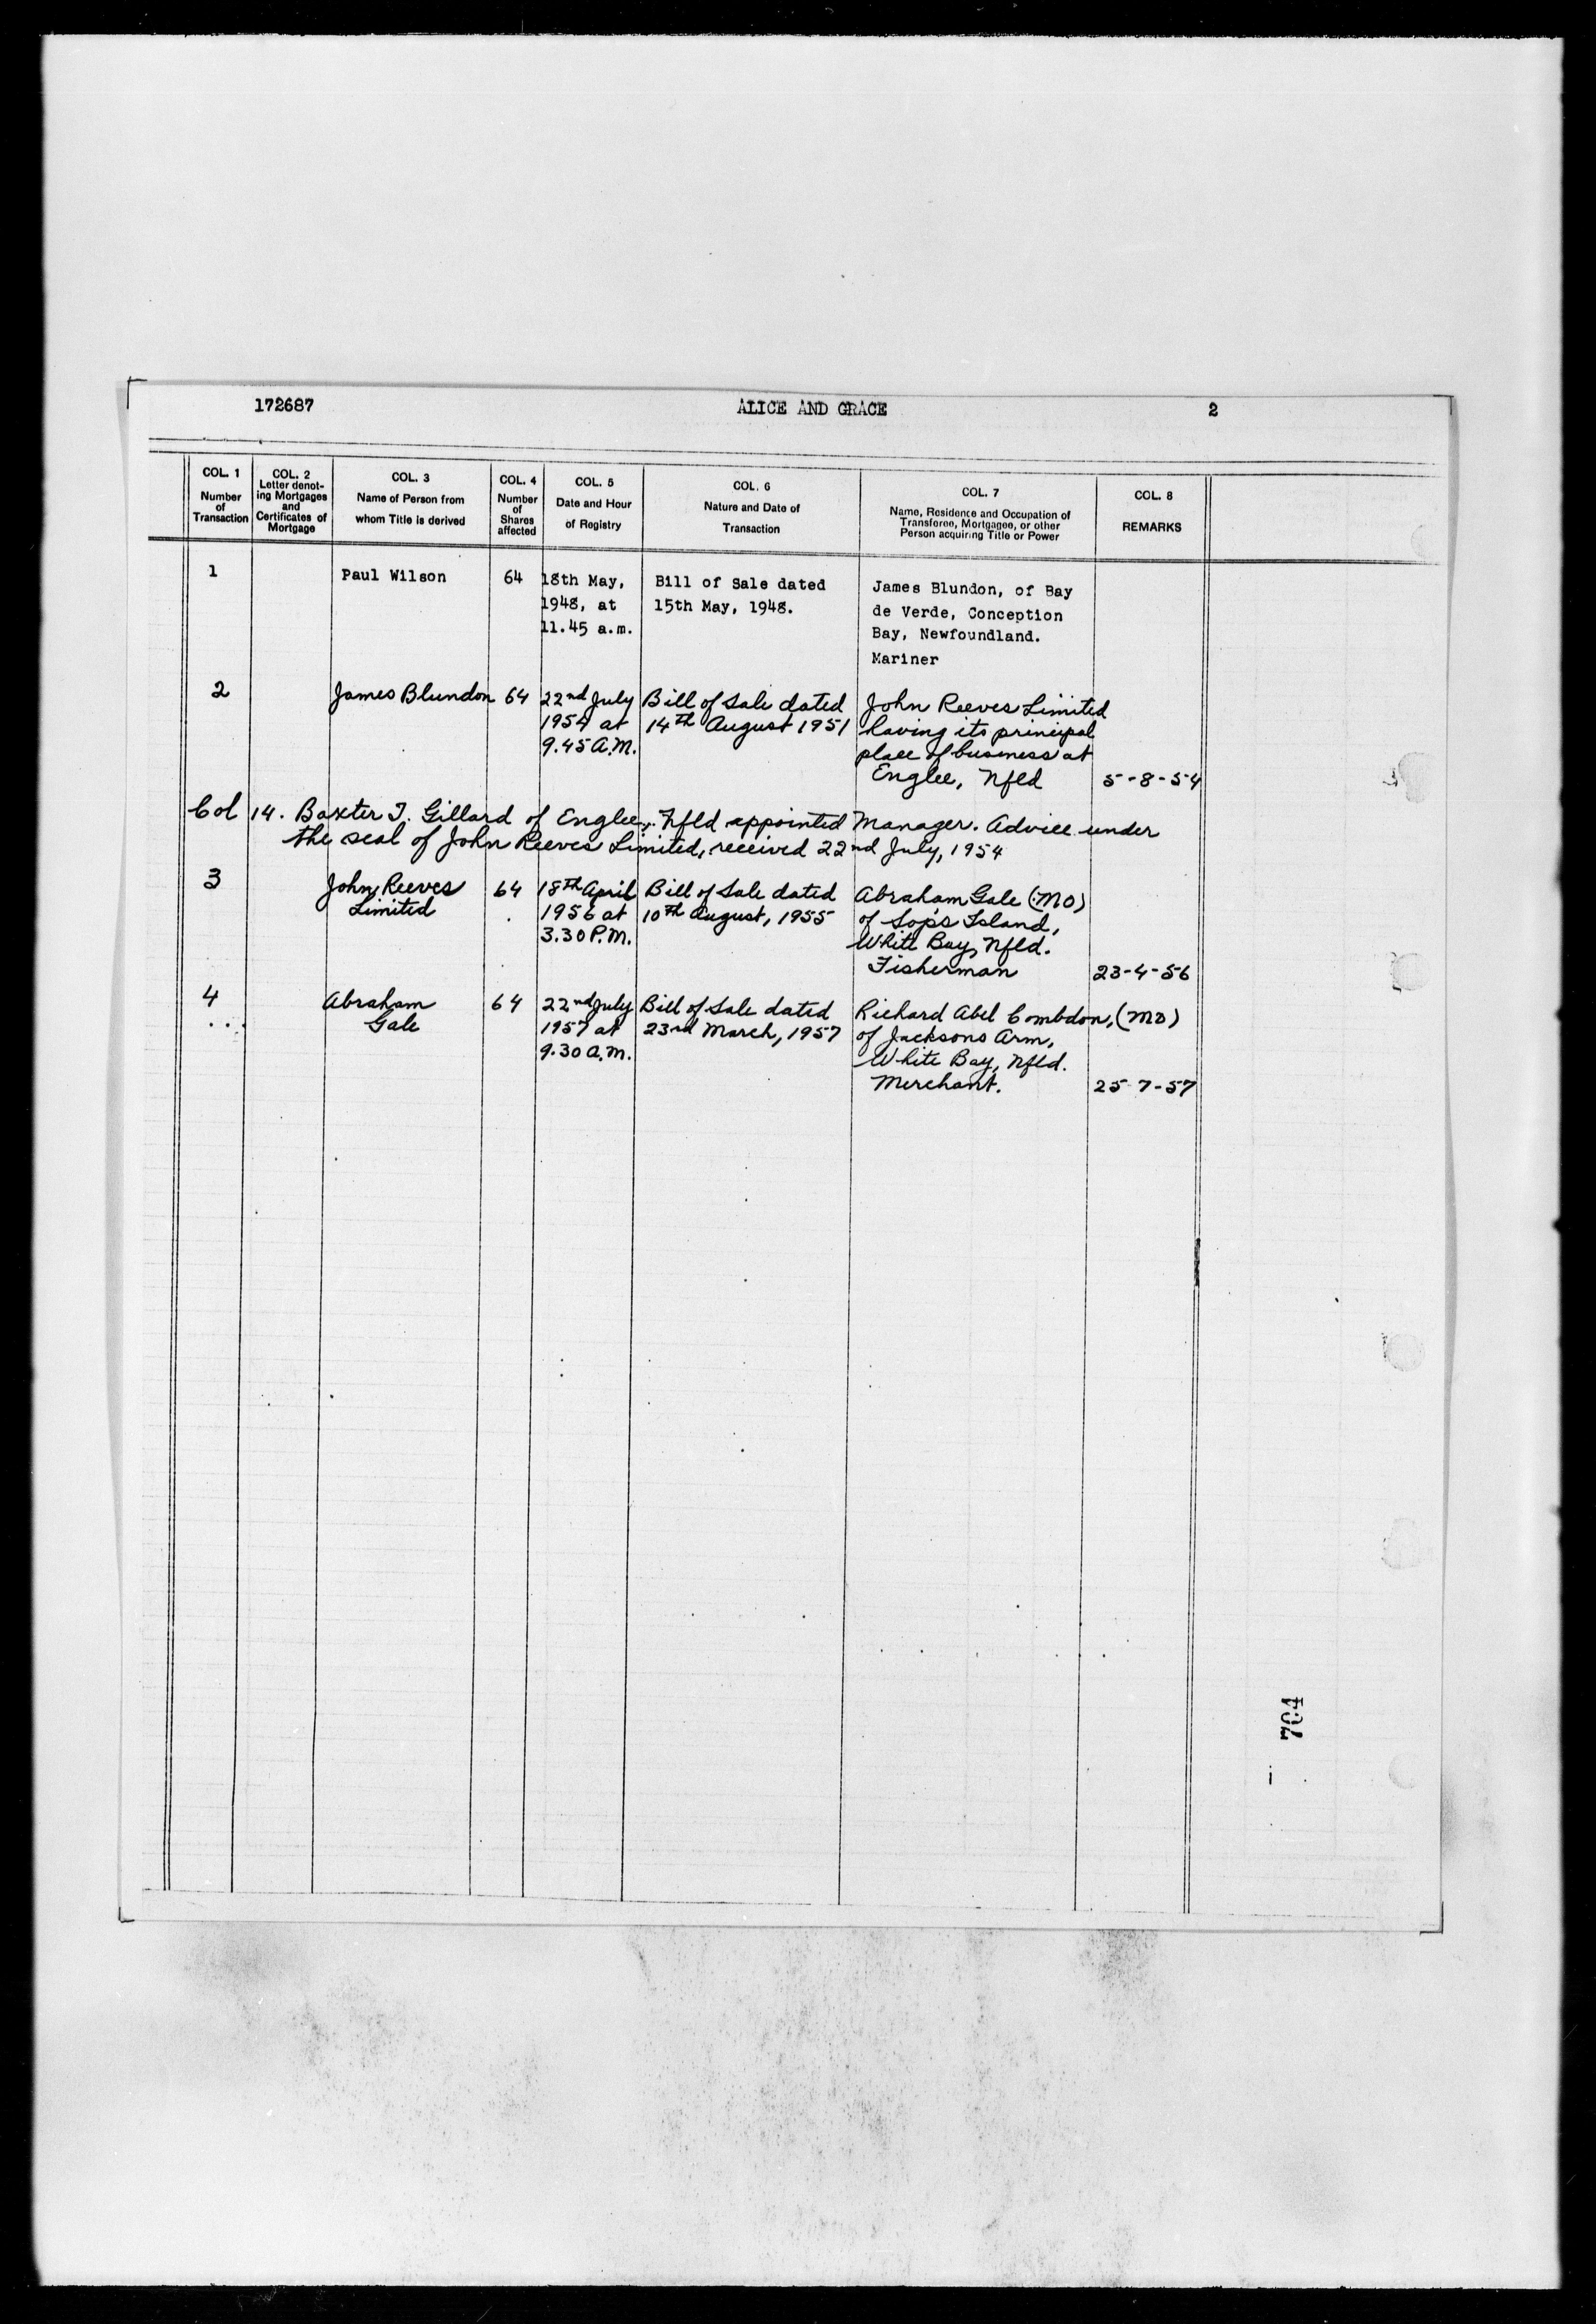 172687 ALICE AND GRACE 2
COL. 1 Number of Transaction
COL. 2 Letter denoting Mortgages and Certificates of Mortgage
COL. 3 Name of Person from whom Title is derived
COL. 4 Number of Shares affected
COL. 5 Date and Hour of Registry
COL. 6 Nature and Date of Transaction
COL. 7 Name, Residence and Occupation of Transferee, Mortgagee, or other Person acquiring Title or Power
COL. 8 REMARKS
1 Paul Wilson 64 18th May, Bill of Sale dated James Blundon, of Bay
1948, at 15th May, 1948. de Verde, Conception
11.45 a.m. Bay, Newfoundland.
Mariner
2 James Blundon 64 22nd July Bill of Sale dated John Reeves Limited
1954 at 14th August 1951 having its principal
9.45 A.M. place of business at
Englee, Nfld 5-8-54
Col 14. Baxter T. Gillard of Englee, Nfld appointed Manager. Advice under
the seal of John Reeves Limited, received 22nd July, 1954
3 John Reeves 64 18th April Bill of Sale dated Abraham Gale (MO)
Limited 1956 at 10th August, 1955 of Sop's Island,
3.30 P.M. White Bay, Nfld.
Fisherman 23-4-56
4 Abraham 64 22nd July Bill of Sale dated Richard Abel Combdon, (MO)
Gale 1957 at 23rd March, 1957 of Jacksons Arm,
9.30 A.M. White Bay, Nfld.
Merchant. 25-7-57
704